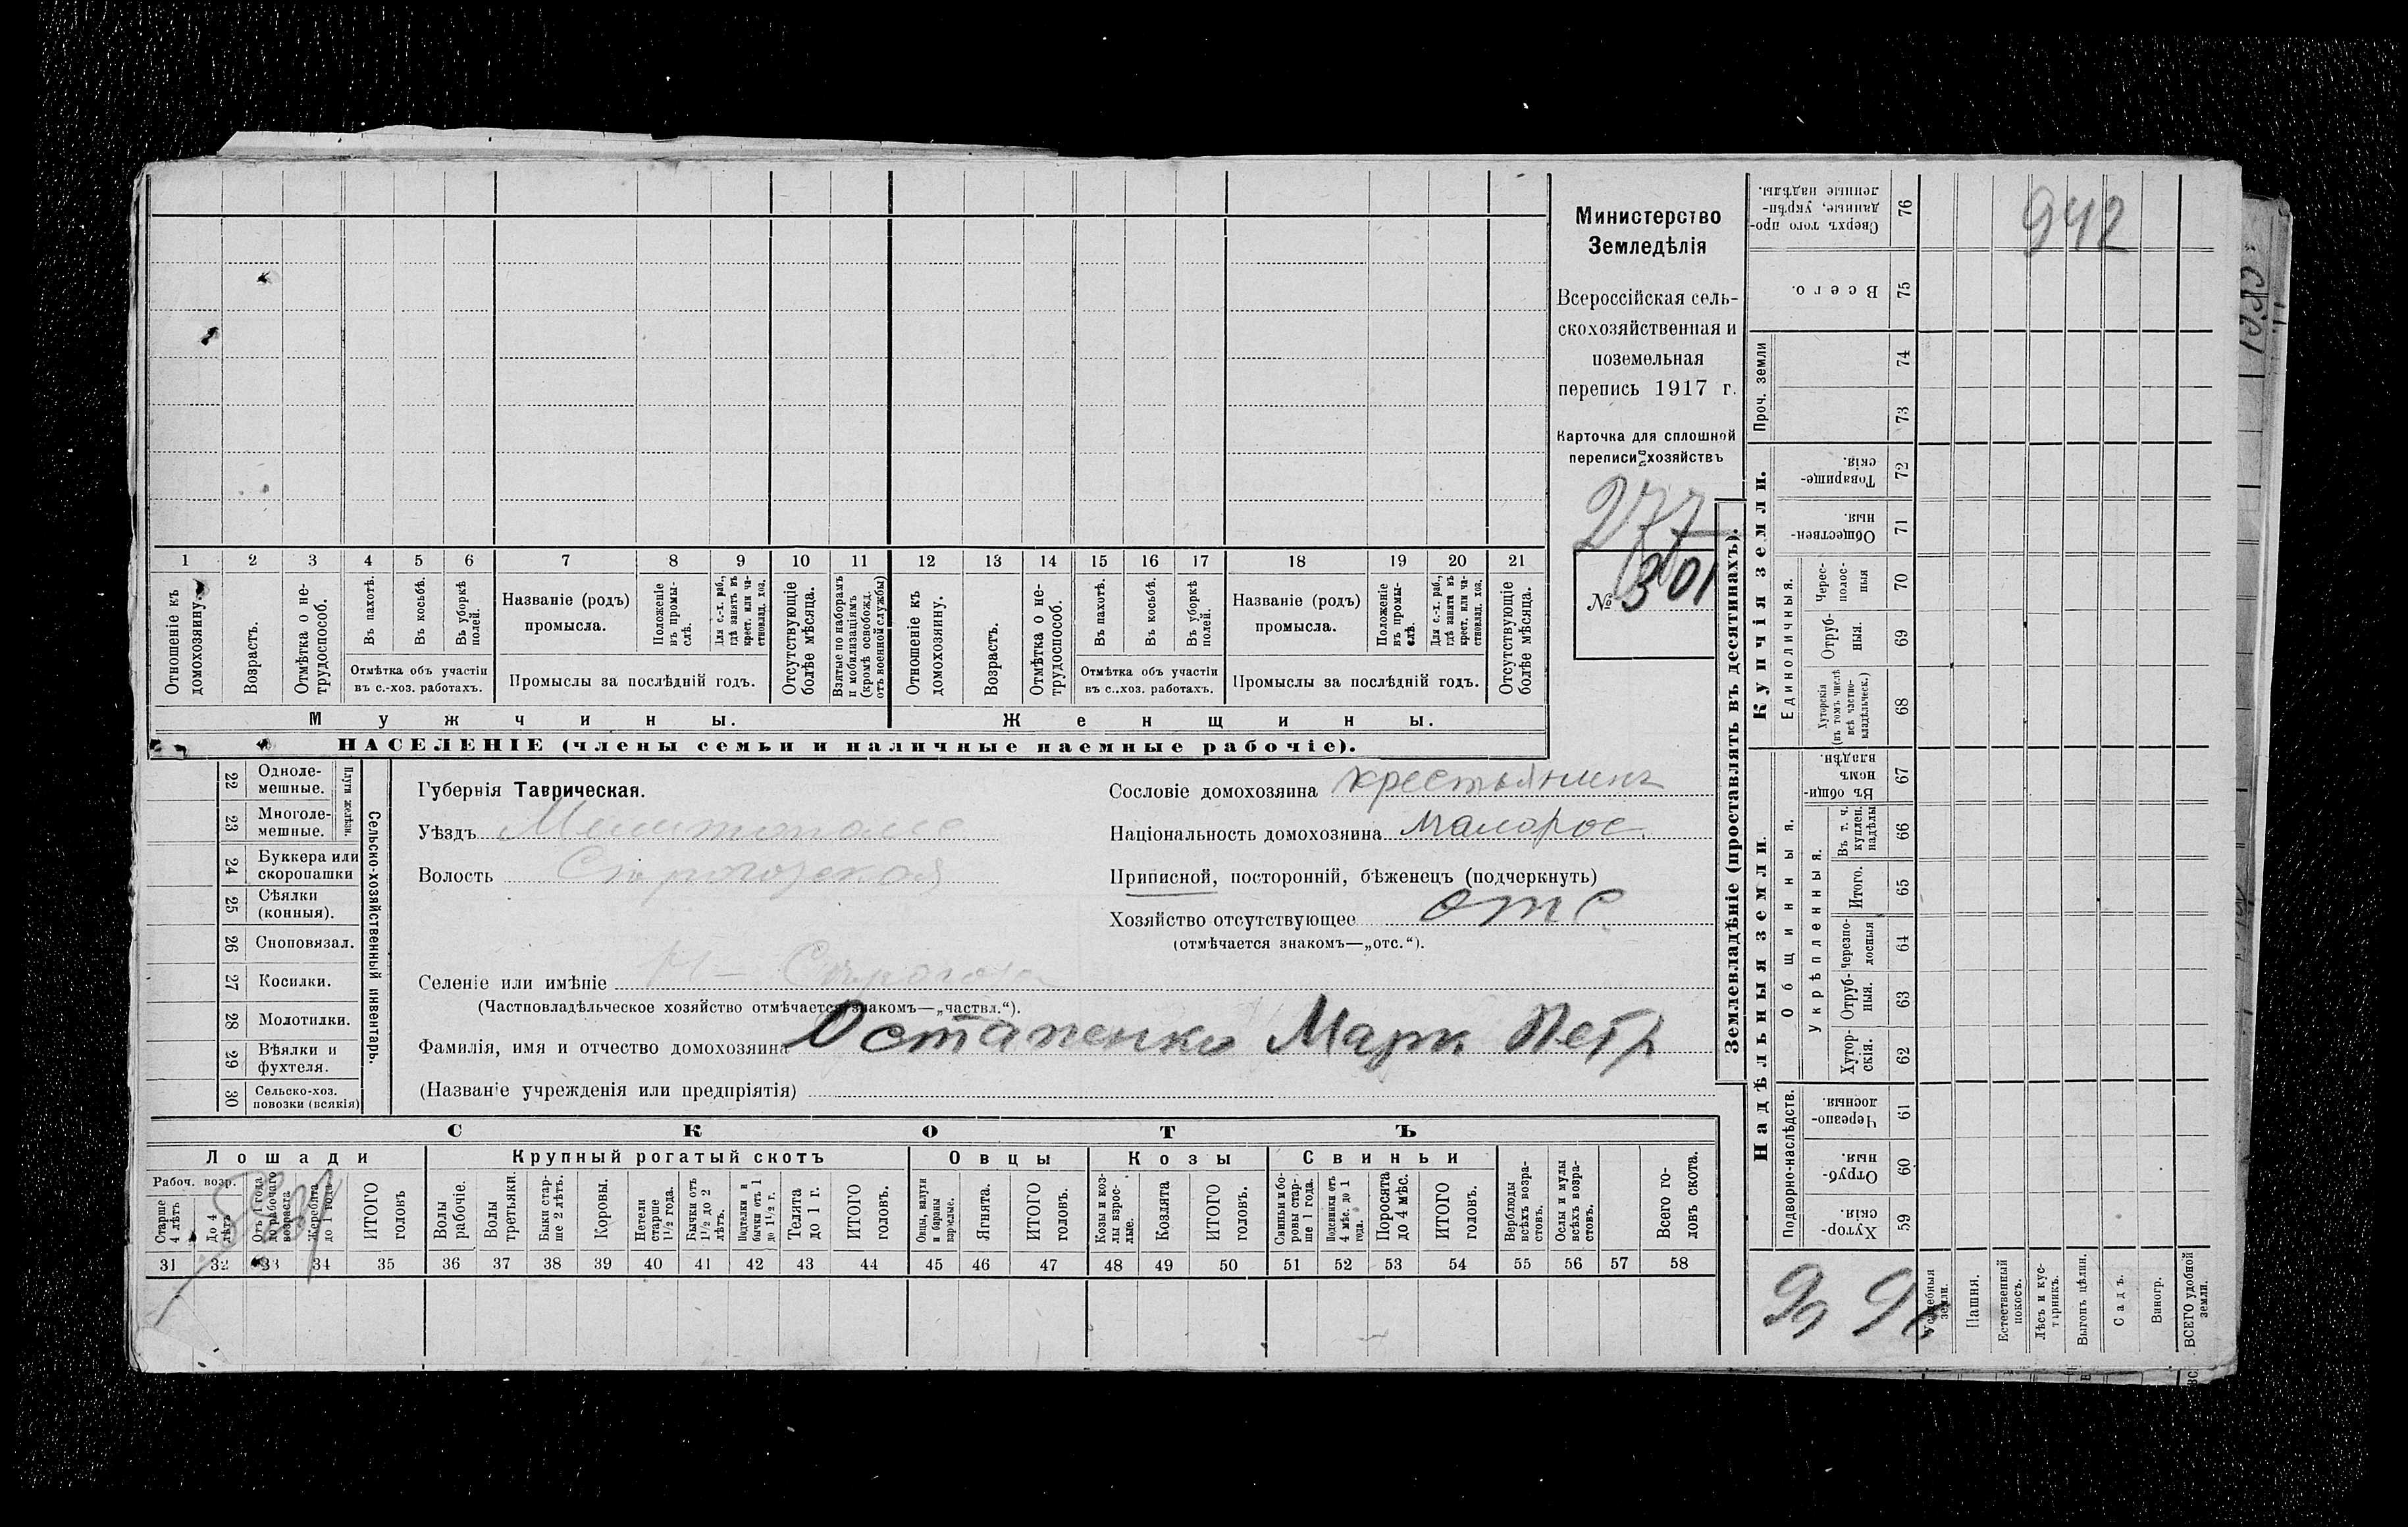 942
Министерство
Земледѣлія
Всероссійская сель-
скохозяйственная и
поземельная
перепись 1917 г.
Карточка для сплошной
переписи хозяйствъ
277
№ 301
1 2 3 4 5 6 7 8 9 10 11 12 13 14 15 16 17 18 19 20 21
Отношеніе къ домохозяину.
Возрастъ.
Отмѣтка о не-трудоспособ.
Въ пахотѣ.
Въ косьбѣ.
Въ уборкѣ полей.
Отмѣтка объ участіи
въ с.-хоз. работахъ.
Названіе (родъ)
промысла.
Положеніе въ промы-слѣ.
Для с.-х. раб., гдѣ занятъ въ крест. или ча-стновлад. хоз.
Промыслы за послѣдній годъ.
Отсутствующіе болѣе мѣсяца.
Взятые по наборамъ и мобилизаціямъ (кромѣ освобожд. отъ военной службы)
Отношеніе къ домохозяину.
Возрастъ.
Отмѣтка о не-трудоспособ.
Въ пахотѣ.
Въ косьбѣ.
Въ уборкѣ полей.
Отмѣтка объ участіи
въ с..хоз. работахъ.
Названіе (родъ)
промысла.
Положеніе въ промы-слѣ.
Для с.-х. раб., гдѣ занята въ крест. или ча-стновлад. хоз.
Промыслы за послѣдній годъ.
Отсутствующіе болѣе мѣсяца.
Мужчины.
Женщины.
НАСЕЛЕНІЕ (члены семьи и наличные наемные рабочіе).
22 Одноле-мешные.
23 Многоле-мешные.
Плуги желѣзн.
24 Буккера или скоропашки
25 Сѣялки (конныя).
26 Сноповязал.
27 Косилки.
28 Молотилки.
29 Вѣялки и фухтеля.
30 Сельско-хоз. повозки (всякія)
Сельско-хозяйственный инвентарь.
Губернія Таврическая.
Уѣздъ Мелитопольс
Волость
Селеніе или имѣніе
(Частновладѣльческое хозяйство отмѣчается знакомъ—„частвл.“).
Фамилія, имя и отчество домохозяина Остапенко Марк Петр
(Названіе учрежденія или предпріятія)
Сословіе домохозяина крестьянинъ
Національность домохозяина малорос.
Приписной, посторонній, бѣженецъ (подчеркнуть)
Хозяйство отсутствующее отс
(отмѣчается знакомъ—„отс.“).
СКОТЪ
Лошади
Рабоч. возр.
Старше 4 лѣтъ
До 4 лѣтъ
Отъ 1 года до рабочаго возраста
Жеребята до 1 года
ИТОГО головъ
Крупный рогатый скотъ
Волы рабочіе.
Волы третьяки.
Быки стар-ше 2 лѣтъ.
Коровы.
Нетели старше 1½ года.
Бычки отъ 1½ до 2 лѣтъ.
Подтелки и бычки отъ 1 до 1½ г.
Телята до 1 г.
ИТОГО головъ.
Овцы
Овцы, валухи и бараны взрослые.
Ягнята.
ИТОГО головъ.
Козы
Козы и коз-лы взрос-лые.
Козлята
ИТОГО головъ.
Свиньи
Свиньи и бо-ровы стар-ше 1 года.
Подсвинки отъ 4 мѣс. до 1 года.
Поросята до 4 мѣс.
ИТОГО головъ.
Верблюды всѣхъ возра-стовъ.
Ослы и мулы всѣхъ возра-стовъ.
Всего го-ловъ скота.
31 32 33 34 35 36 37 38 39 40 41 42 43 44 45 46 47 48 49 50 51 52 53 54 55 56 57 58
Землевладѣніе (проставлять въ десятинахъ).
Купчія земли.
Сверхъ того про-данные, укрѣп-ленные надѣлы. 76
Всего. 75
Проч. земли
74
73
Товарище-скія. 72
Обществен-ныя 71
Единоличныя.
Черес-полос-ныя 70
Отруб-ныя. 69
Хуторскія (въ томъ числѣ всѣ частно-владѣльческ.) 68
Надѣльныя земли.
Общинныя.
Въ общи-номъ владѣн. 67
Укрѣпленныя.
Въ т. ч. куплен. надѣлы 66
Итого. 65
Черезпо-лосныя 64
Отруб-ныя. 63
Хутор-скія. 62
Подворно-наслѣдств.
Черезпо-лосныя. 61
Отруб-ныя. 60
Хутор-скія. 59
Усадебныя земли.
Пашня.
Естественный покосъ.
Лѣсъ и кус-тарникъ.
Выгонъ цѣлин.
Садъ.
Виногр.
ВСЕГО удобной земли.